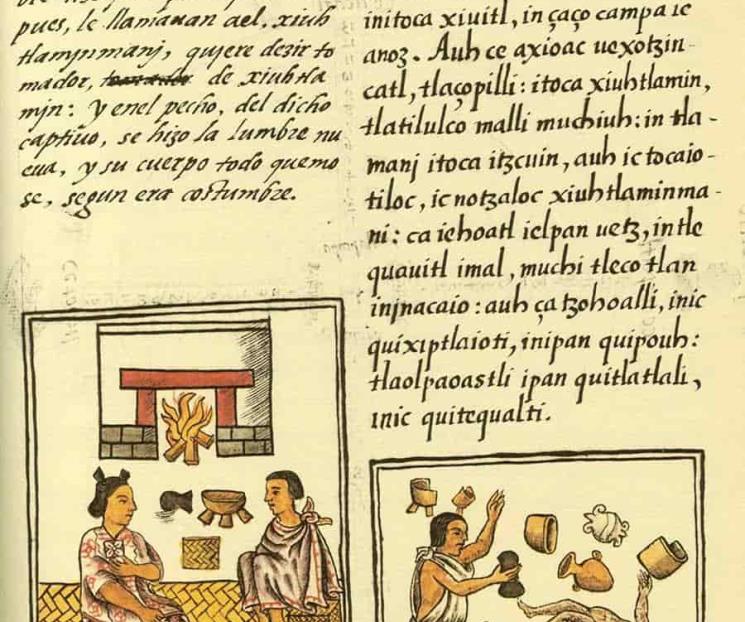 pues, le llamauan ael, xiuh
tlamjnmanj, qujere dezir to
mador, de xiuhtla
mjn: y enel pecho, del dicho
captiuo, se hizo la lumbre nu
eua, y su cuerpo todo quemo
se, segun era costumbre.
initoca xiuitl, in çaço campa ie
anoz. Auh ce axioac uexotzin-
catl, tlaçopilli: itoca xiuhtlamin,
tlatilulco malli muchiuh: in tla-
manj itoca itzcuin, auh ic tocaio-
tiloc, ic notzaloc xiuhtlaminma-
ni: ca iehoatl ielpan uetz, in tle
quauitl imal, muchi tleco tlan
injnacaio: auh ça tzohoalli, inic
quixiptlaioti, inipan quipouh:
tlaolpaoastli ipan quitlatlali,
inic quitequalti.